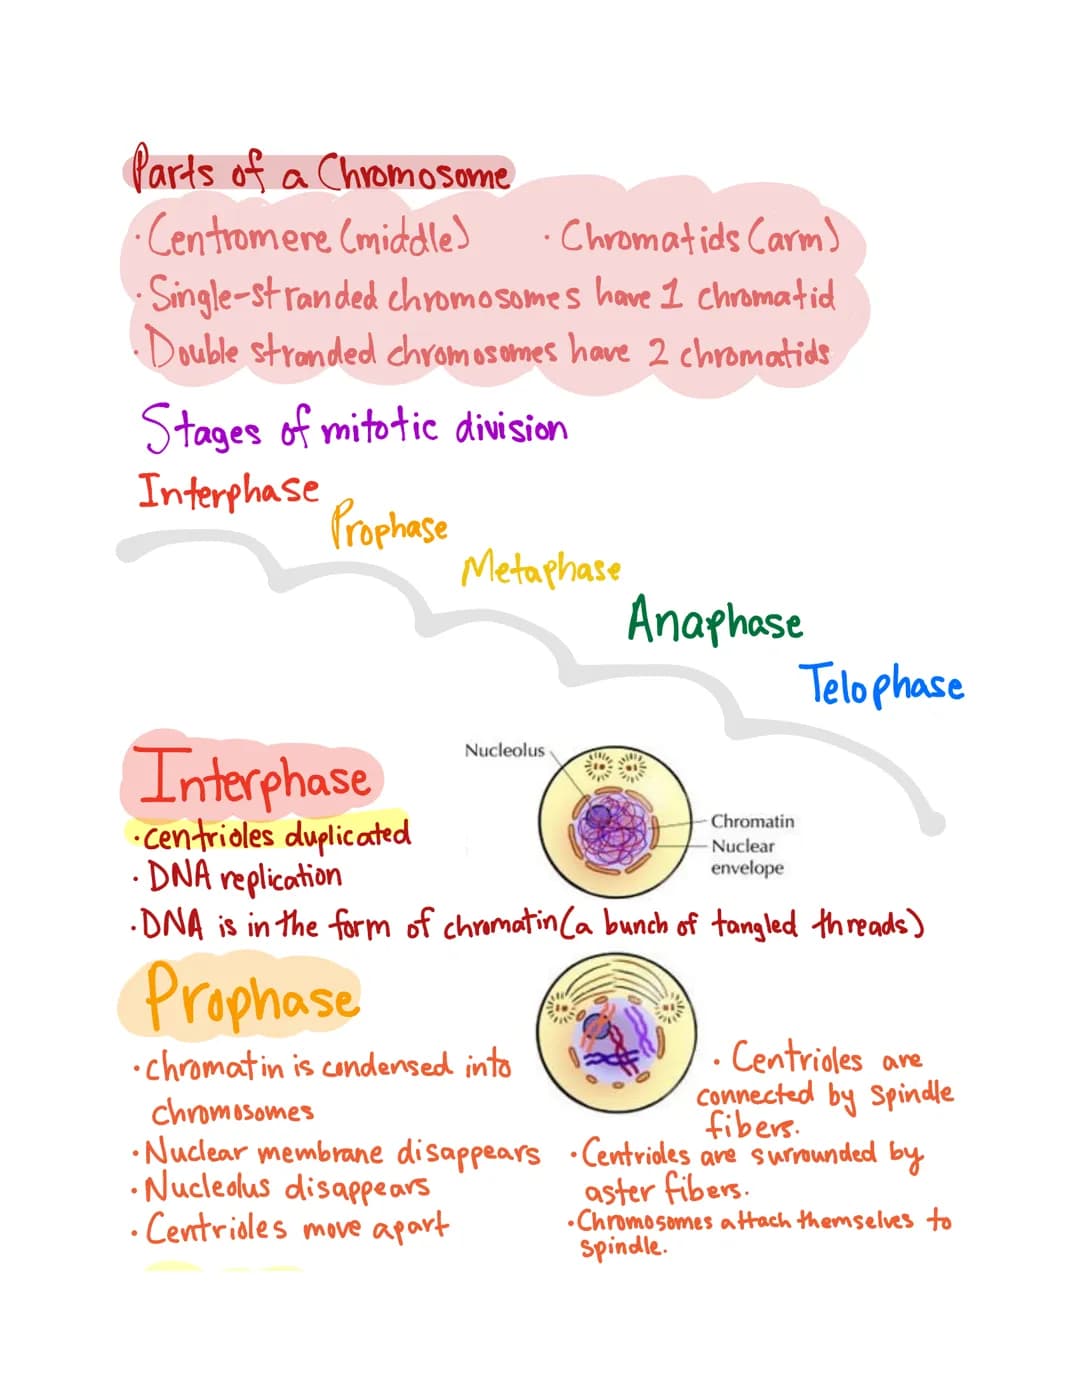 Parts of a Chromosome
· Centromere (middle) · Chromatids (arm)
· Single-stranded chromosomes have 1 chromatid
· Double stranded chromosomes have 2 chromatids
Stages of mitotic division
Interphase
Prophase
Metaphase
Anaphase
Telophase
Interphase
· centrioles duplicated
· DNA replication
· DNA is in the form of chromatin (a bunch of tangled threads)
Nucleolus
Chromatin
Nuclear
envelope
Prophase
· chromatin is condensed into
chromosomes
· Nuclear membrane disappears
· Nucleolus disappears
· Centrioles move apart
· Centrioles are
connected by Spindle
fibers.
· Centrioles are surrounded by
aster fibers.
· Chromosomes attach themselves to
spindle.